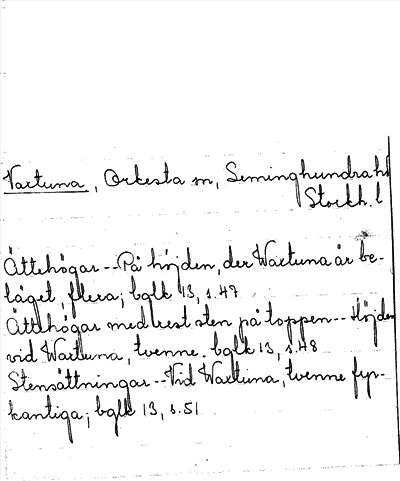 Vaxtuna, Orkesta sn, Seminghundrahd
Stockh. l
Ättehögar -- På höjden, der Waxtuna är be-
läget, flera; bglk 13, s. 47
Ättehögar med rest sten på toppen -- Höjden
vid Waxtuna, tvenne. bglk 13, s. 48
Stensättningar -- Vid Waxtuna, tvenne fyr-
kantiga; bglk 13, s. 51